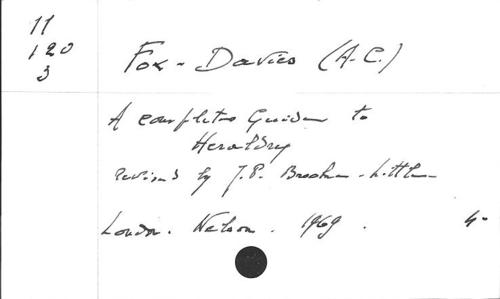 11
120
3
Fox-Davies (A.C.)
A complete Guide to
Heraldry
revised by J.P. Brooke-Little
London. Nelson. 1969.
4-